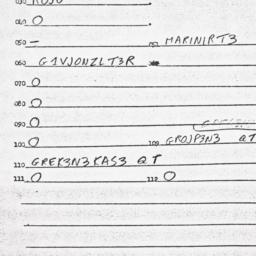 040 O .
050 — 051 MARINIRT3
060 G1VJONZLT3R
070 O
080 O
090 O
100 O 109 GROJP3N3 QT
110 GREK3N3KAS3 QT
111 O 112 O